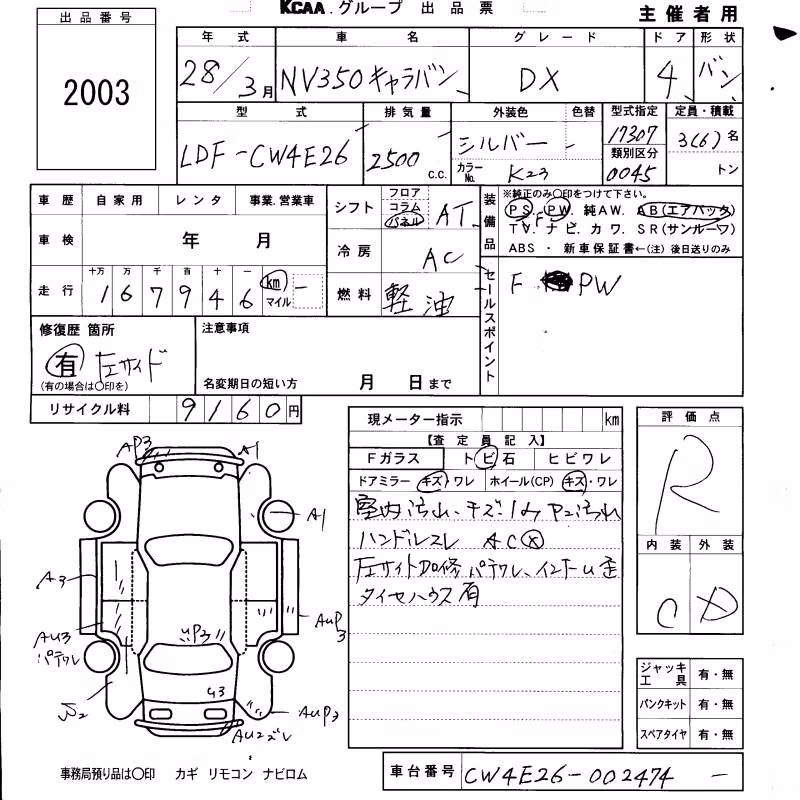 KCAA. グループ 出品票 主催者用
出品番号
2003
年式 車名 グレード ドア 形状
28/3月 NV350キャラバン DX 4 バン
型式 排気量 外装色 色替 型式指定 定員・積載
LDF-CW4E26 2500 c.c. シルバー - 17307 3(6)名
カラーNo. K23 類別区分 0045 トン
車歴 自家用 レンタ 事業.営業車
車検 年 月
走行 十万 万 千 百 十 一
167946 km マイル -
シフト フロア コラム パネル AT
冷房 AC
燃料 軽油
装備品 ※純正のみ〇印をつけて下さい。
PS. PW. 純AW. AB(エアバック)
F
TV. ナビ. カワ. SR(サンルーフ)
ABS ・ 新車保証書←(注) 後日送りのみ
セールスポイント F PW
修復歴 箇所
有 左サイド
(有の場合は〇印を)
注意事項
名変期日の短い方 月 日まで
リサイクル料 9160円
現メーター指示 km
【査定員記入】
Fガラス トビ石 ヒビワレ
ドアミラー キズ・ワレ ホイール(CP) キズ・ワレ
室内汚れ、キズ
ハンドルスレ AC
タイヤハウス 有
評価点
R
内装 外装
C D
ジャッキ工具 有・無
パンクキット 有・無
スペアタイヤ 有・無
AP3 A1
A1
A3
AUP3
AU3
パテワレ
UP3
U3
AUP3
AU2ズレ
事務局預り品は〇印 カギ リモコン ナビロム
車台番号 CW4E26-002474 -